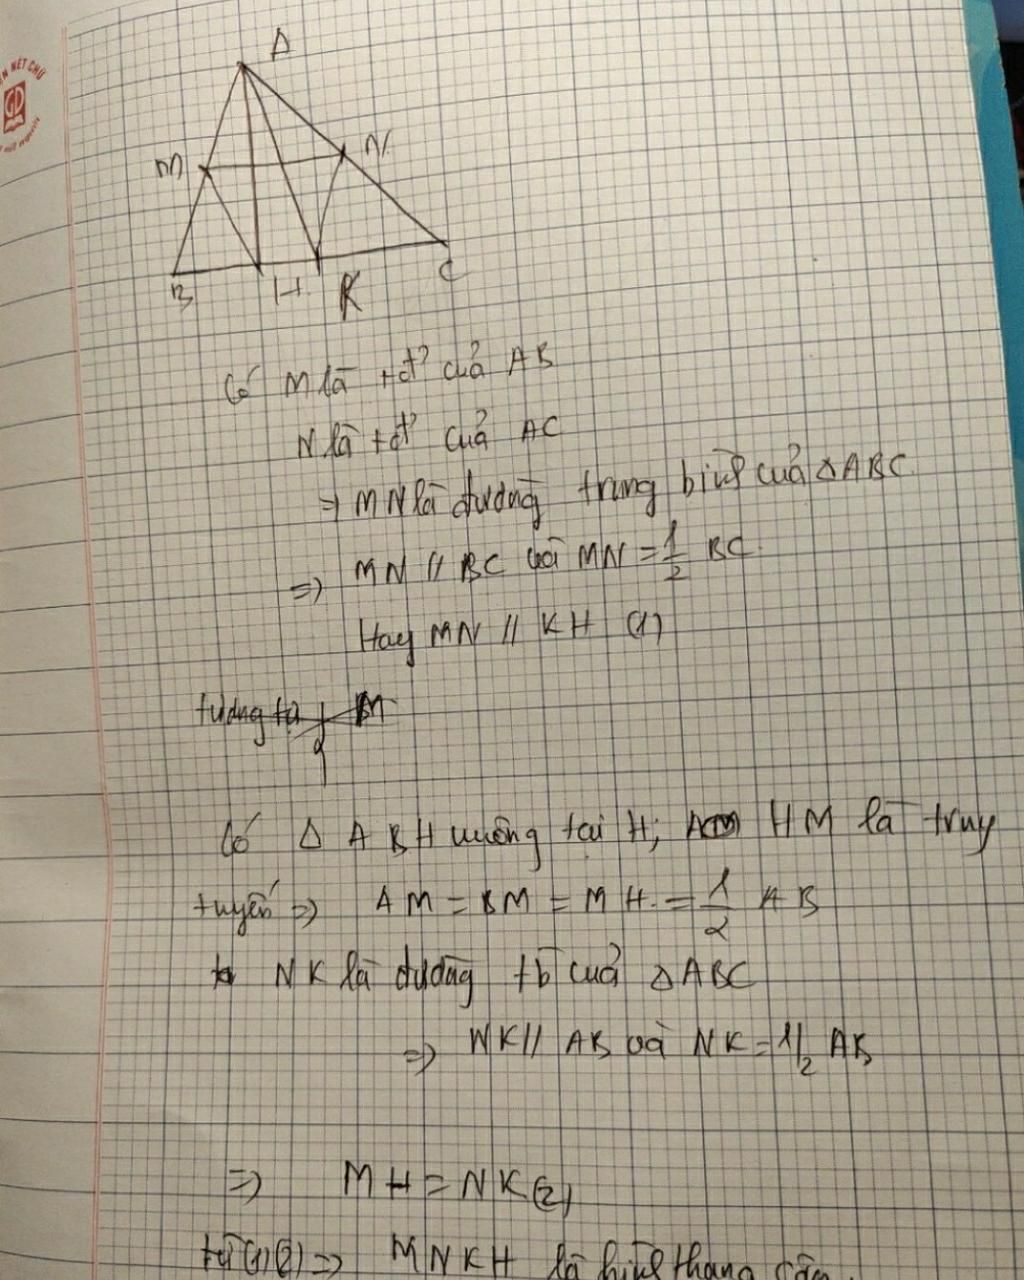 NÉT CHỮ
GD
A
M
N
B
H
K
C
Có M là tđ' của AB
N là tđ' của AC
=> MN là đường trung bình của △ABC
=> MN // BC và MN = 1/2 BC.
Hay MN // KH (1)
tương tự
Có △ ABH vuông tại H; HM là truy
tuyến => AM = BM = MH = 1/2 AB
NK là đường tb của △ABC
=> NK // AB và NK = 1/2 AB
=> MH = NK (2)
từ (1)(2) => MNKH là hình thang cân.